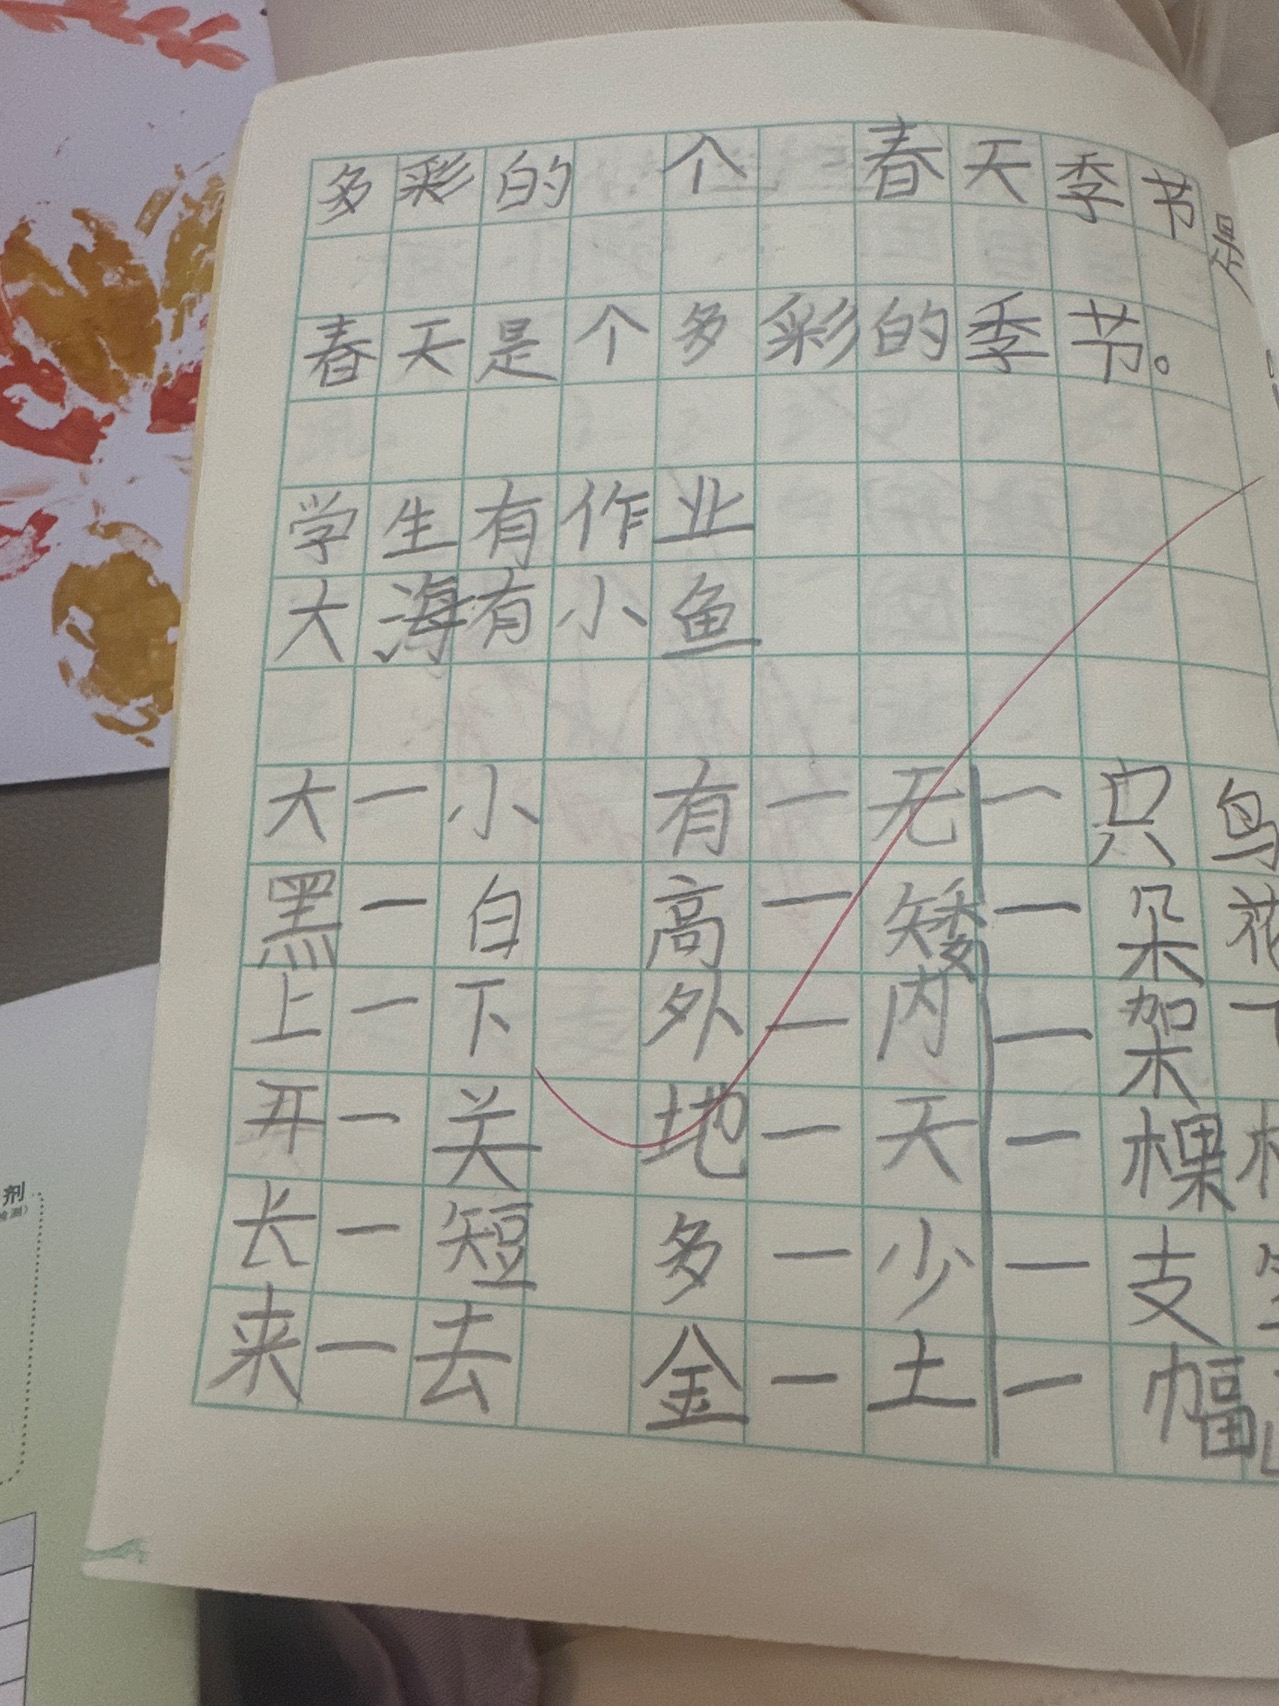 多彩的 个 春天季节 是
春天是个多彩的季节。
学生有作业
大海有小鱼
大一小 有一无 一只鸟
黑一白 高一矮 一朵花
上一下 外一内 一架
开一关 地一天 一棵
长一短 多一少 一支
来一去 金一土 一幅
剂